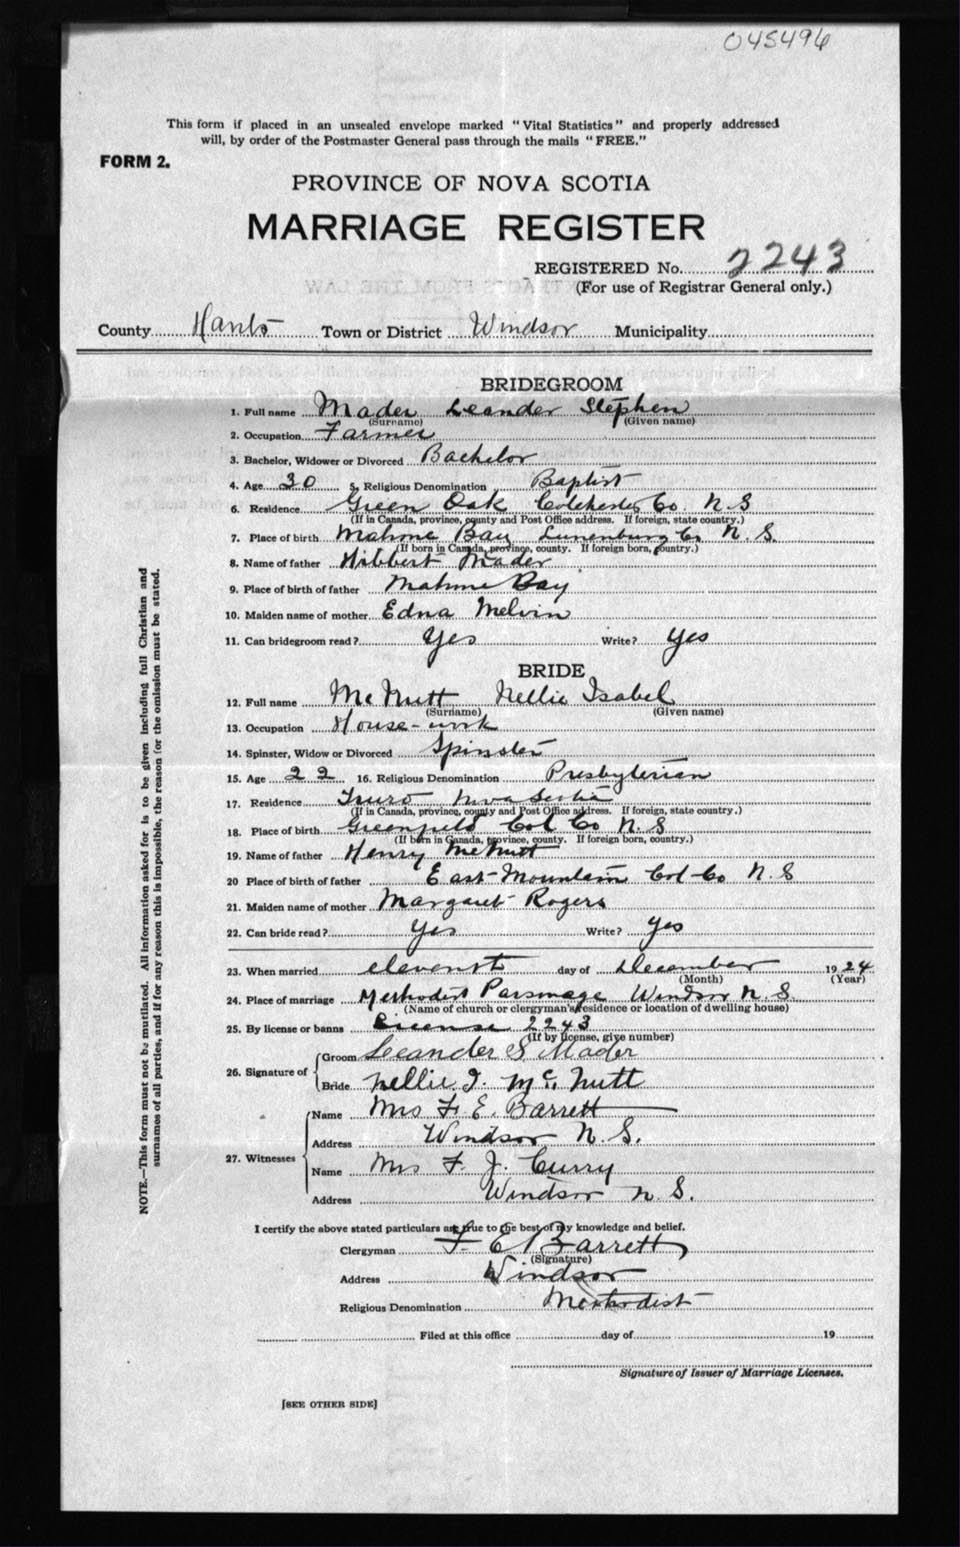 045496
This form if placed in an unsealed envelope marked "Vital Statistics" and properly addressed
will, by order of the Postmaster General pass through the mails "FREE."
FORM 2.
PROVINCE OF NOVA SCOTIA
MARRIAGE REGISTER
REGISTERED No. 2243
(For use of Registrar General only.)
County Hants Town or District Windsor Municipality
BRIDEGROOM
1. Full name Mader Leander Stephen
(Surname) (Given name)
2. Occupation Farmer
3. Bachelor, Widower or Divorced Bachelor
4. Age 30 5. Religious Denomination Baptist
6. Residence Green Oak Colchester Co. N S
(If in Canada, province, county and Post Office address. If foreign, state country.)
7. Place of birth Mahone Bay Lunenburg Co N. S.
(If born in Canada, province, county. If foreign born, country.)
8. Name of father Hibbert Mader
9. Place of birth of father Mahone Bay
10. Maiden name of mother Edna Melvin
11. Can bridegroom read? Yes Write? Yes
BRIDE
12. Full name McNutt Nellie Isabel
(Surname) (Given name)
13. Occupation House-work
14. Spinster, Widow or Divorced Spinster
15. Age 22 16. Religious Denomination Presbyterian
17. Residence Truro Nova Scotia
(If in Canada, province, county and Post Office address. If foreign, state country.)
18. Place of birth Greenfield Col Co N. S
(If born in Canada, province, county. If foreign born, country.)
19. Name of father Henry McNutt
20 Place of birth of father East Mountain Col-Co N. S
21. Maiden name of mother Margaret Rogers
22. Can bride read? Yes Write? Yes
23. When married elevenst day of December 1924
(Month) (Year)
24. Place of marriage Methodist Parsonage Windsor N. S.
(Name of church or clergyman's residence or location of dwelling house)
25. By license or banns License 2243
(If by license, give number)
26. Signature of Groom Leander S Mader
Bride Nellie. I. Mc. Nutt
27. Witnesses Name Mrs F. E. Barrett
Address Windsor N. S.
Name Mrs F. J. Curry
Address Windsor N. S.
I certify the above stated particulars are true to the best of my knowledge and belief.
Clergyman F. E. Barrett
(Signature)
Address Windsor
Religious Denomination Methodist
Filed at this office day of 19
Signature of Issuer of Marriage Licenses.
[SEE OTHER SIDE]
NOTE.—This form must not be mutilated. All information asked for is to be given including full Christian and
surnames of all parties, and if for any reason this is impossible, the reason for the omission must be stated.